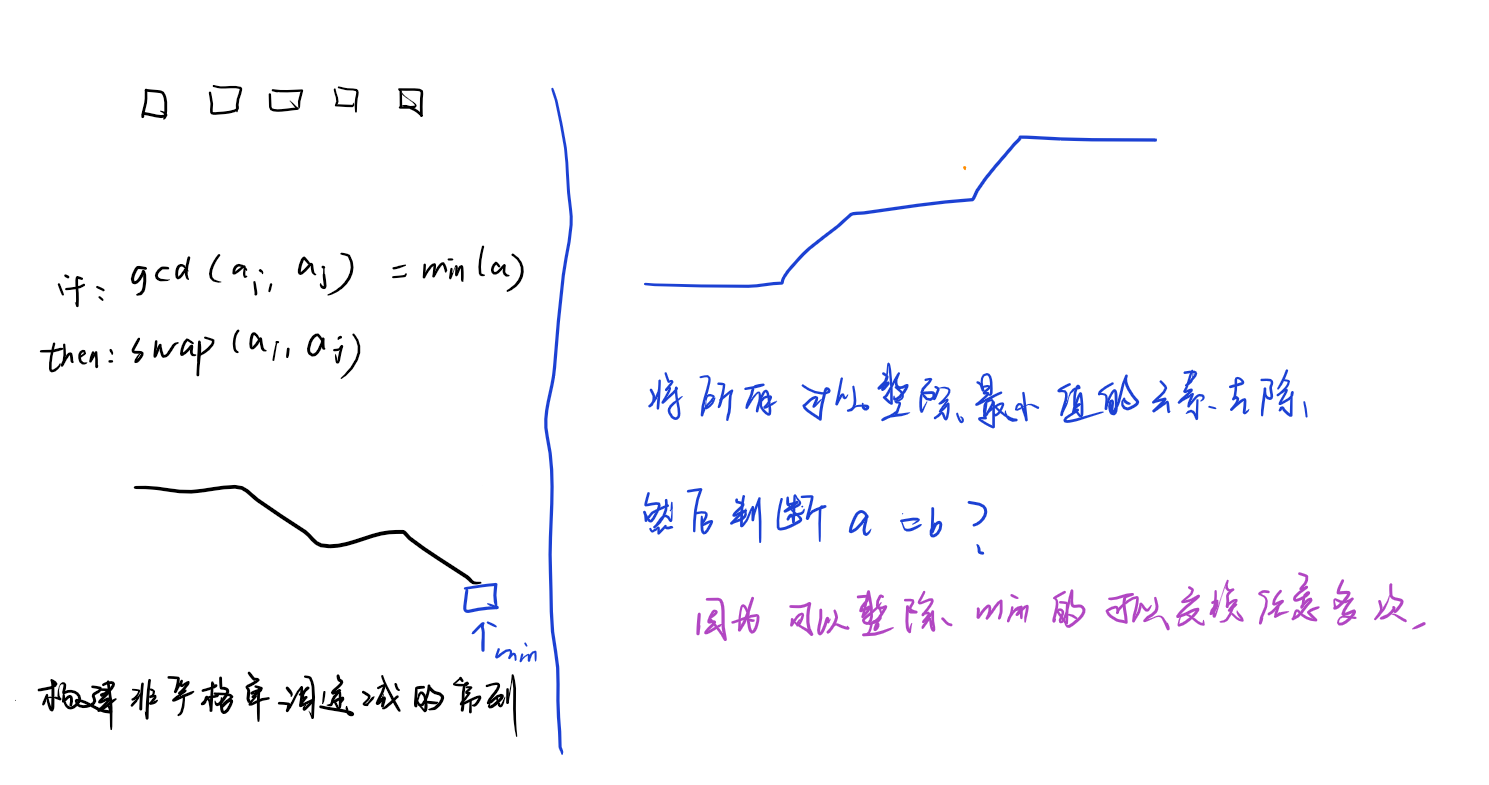 if: gcd(ai, aj) = min(a)
then: swap(ai, aj)
min
构建非严格单调递减的常列
将所有可以整除最小值的元素去除,
然后判断 a = b ?
因为可以整除 min 的可以交换任意多次,